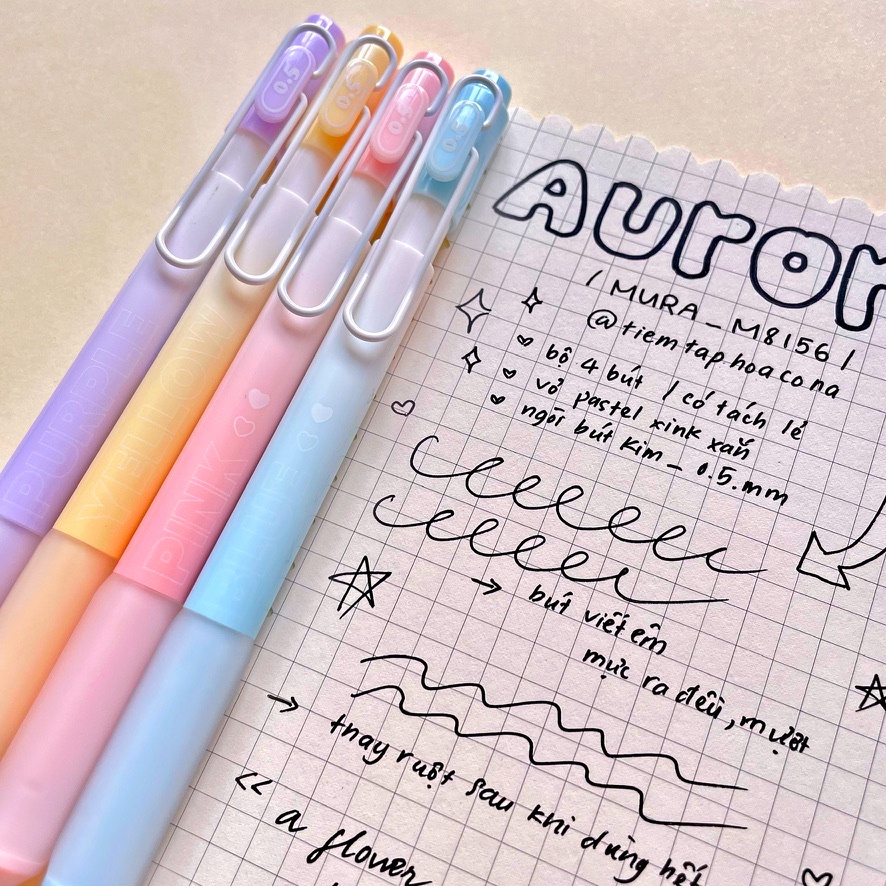 0.5
0.5
0.5
0.5
PURPLE
YELLOW
PINK
BLUE
Auror
/ MURA _ M8156 /
@tiemtaphoacona
bộ 4 bút / có tách lẻ
vỏ pastel xink xắn
ngòi bút kim _ 0.5.mm
→ bút viết êm
mực ra đều, mượt
→ thay ruột sau khi dùng hết
<< a flower